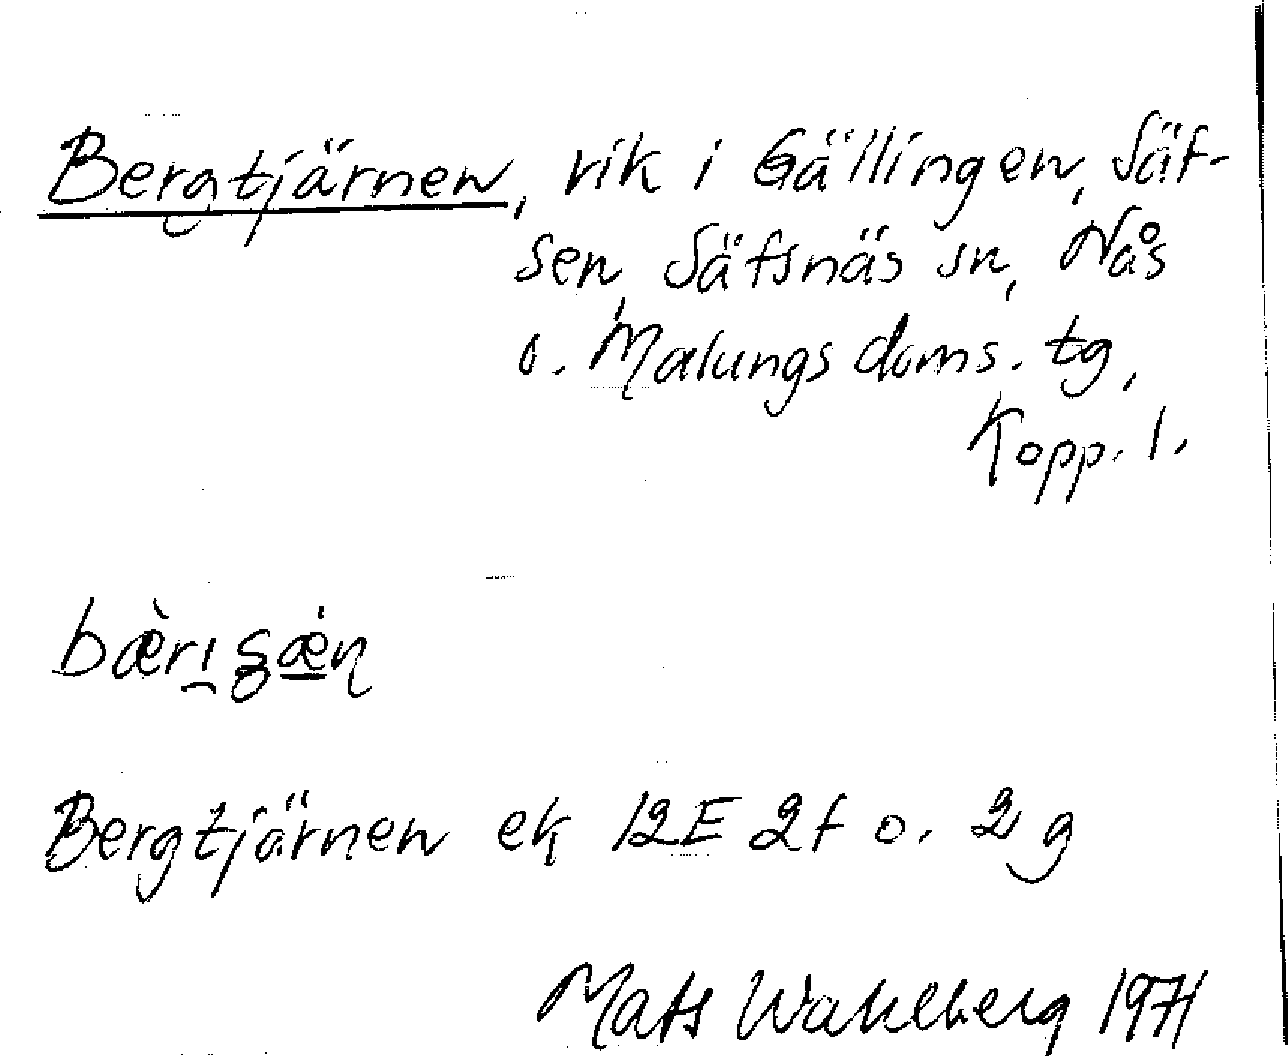 Bergtjärnen, vik i Gällingen, Säf-
sen, Säfsnäs sn, Nås
o. Malungs doms. tg,
Kopp. l.
Bergtjärnen ek 12E 2f o. 2g
Mats Wahlberg 1971